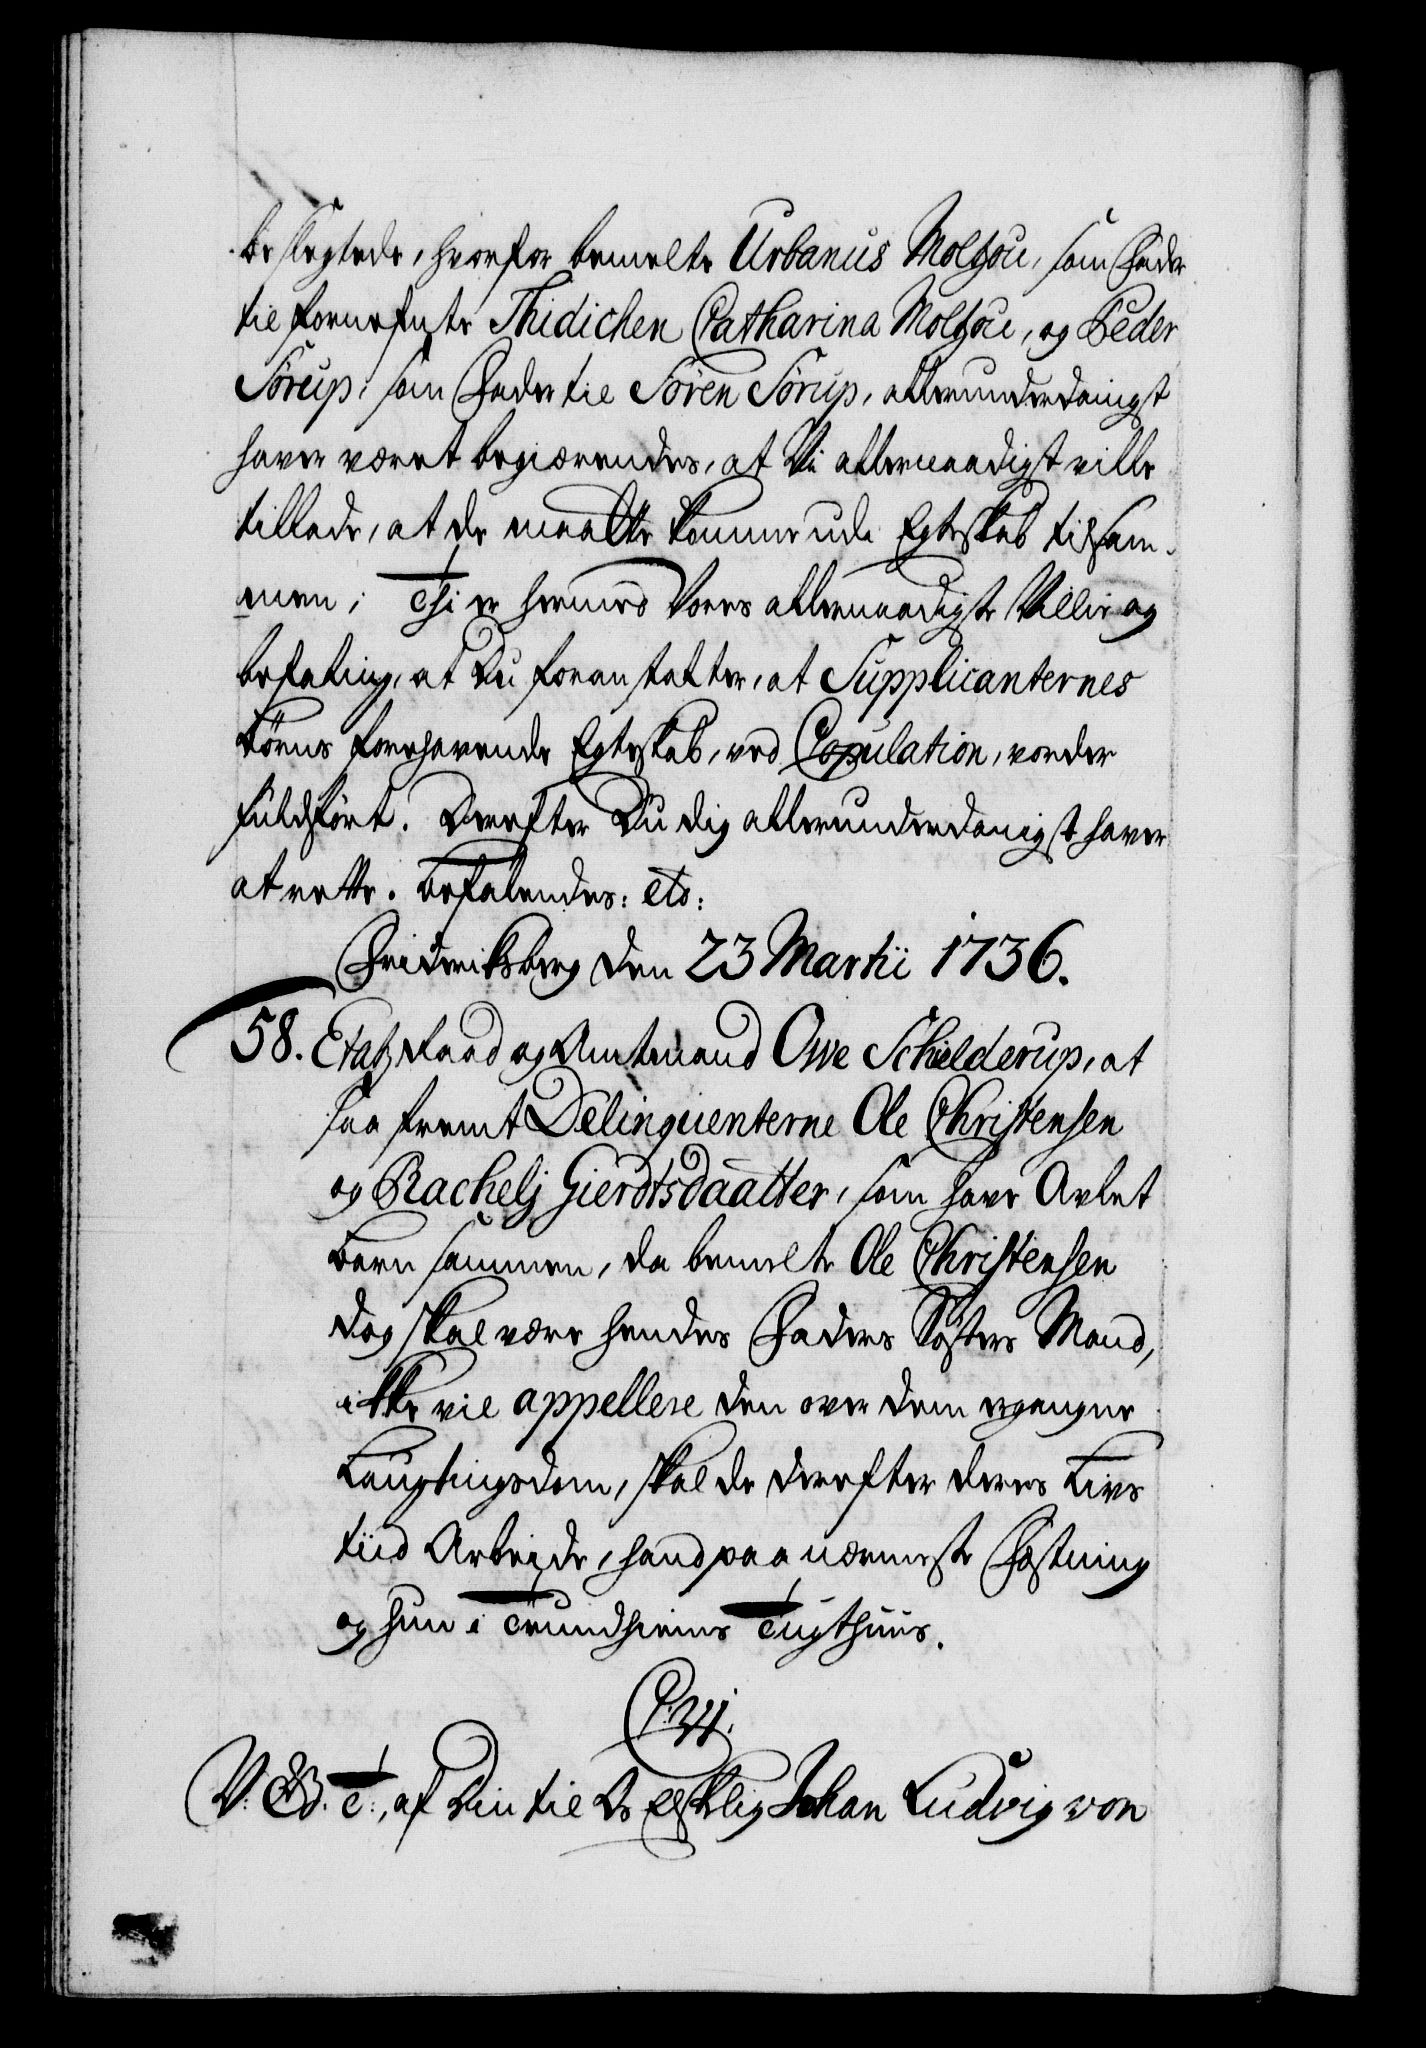 beslegtede, hvorfor bemelte Urbanus Moltzou, som Fader
til fornefnte Thidichen Catharina Moltzou, og Peder
Sörup, som Fader til Sören Sörup, allerunderdanigst
haver været begiærendes, at Vi allernaadigst ville
tillade, at de maatte komme udi Egteskab tilsam-
men; Thi er hermed Vores allernaadigste Villie og
befaling, at Du foranstalter, at Supplicanternes
Börns forehavende Egteskab, ved Copulation, vorder
fuldfört. Derefter Du dig allerunderdanigst haver
at rette. Befalendes: etc:
Friderichsberg den 23 Martii 1736.
58. Etatz Raad og Amtmand Owe Schielderup, at
saa fremt Delinquenterne Ole Christensen
og Rachelj Gierdtsdaatter, som have Avlet
Barn sammen, da bemelte Ole Christensen
dog skal være hendes Faders Sösters Mand,
ikke vil appellere den over dem ergangne
Laugtingsdom, skal de derefter deres Livs
tiid Arbejde, hand paa nærmeste Fæstning
og hun i Trundhiems Tugthuus.
C: VI.
V: G: T:, af Din til Os Elskelig Johan Ludvig von